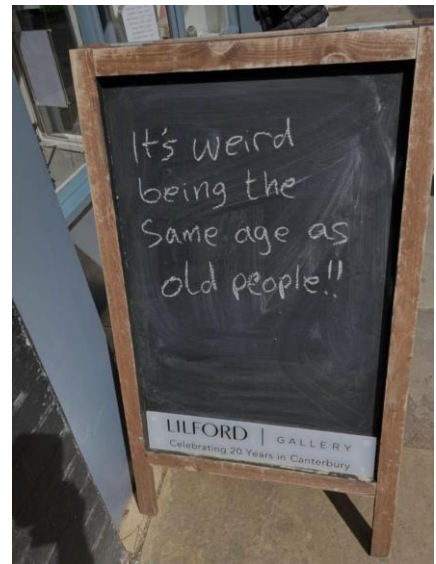 It's weird
being the
Same age as
old people!!
LILFORD | GALLERY
Celebrating 20 Years in Canterbury